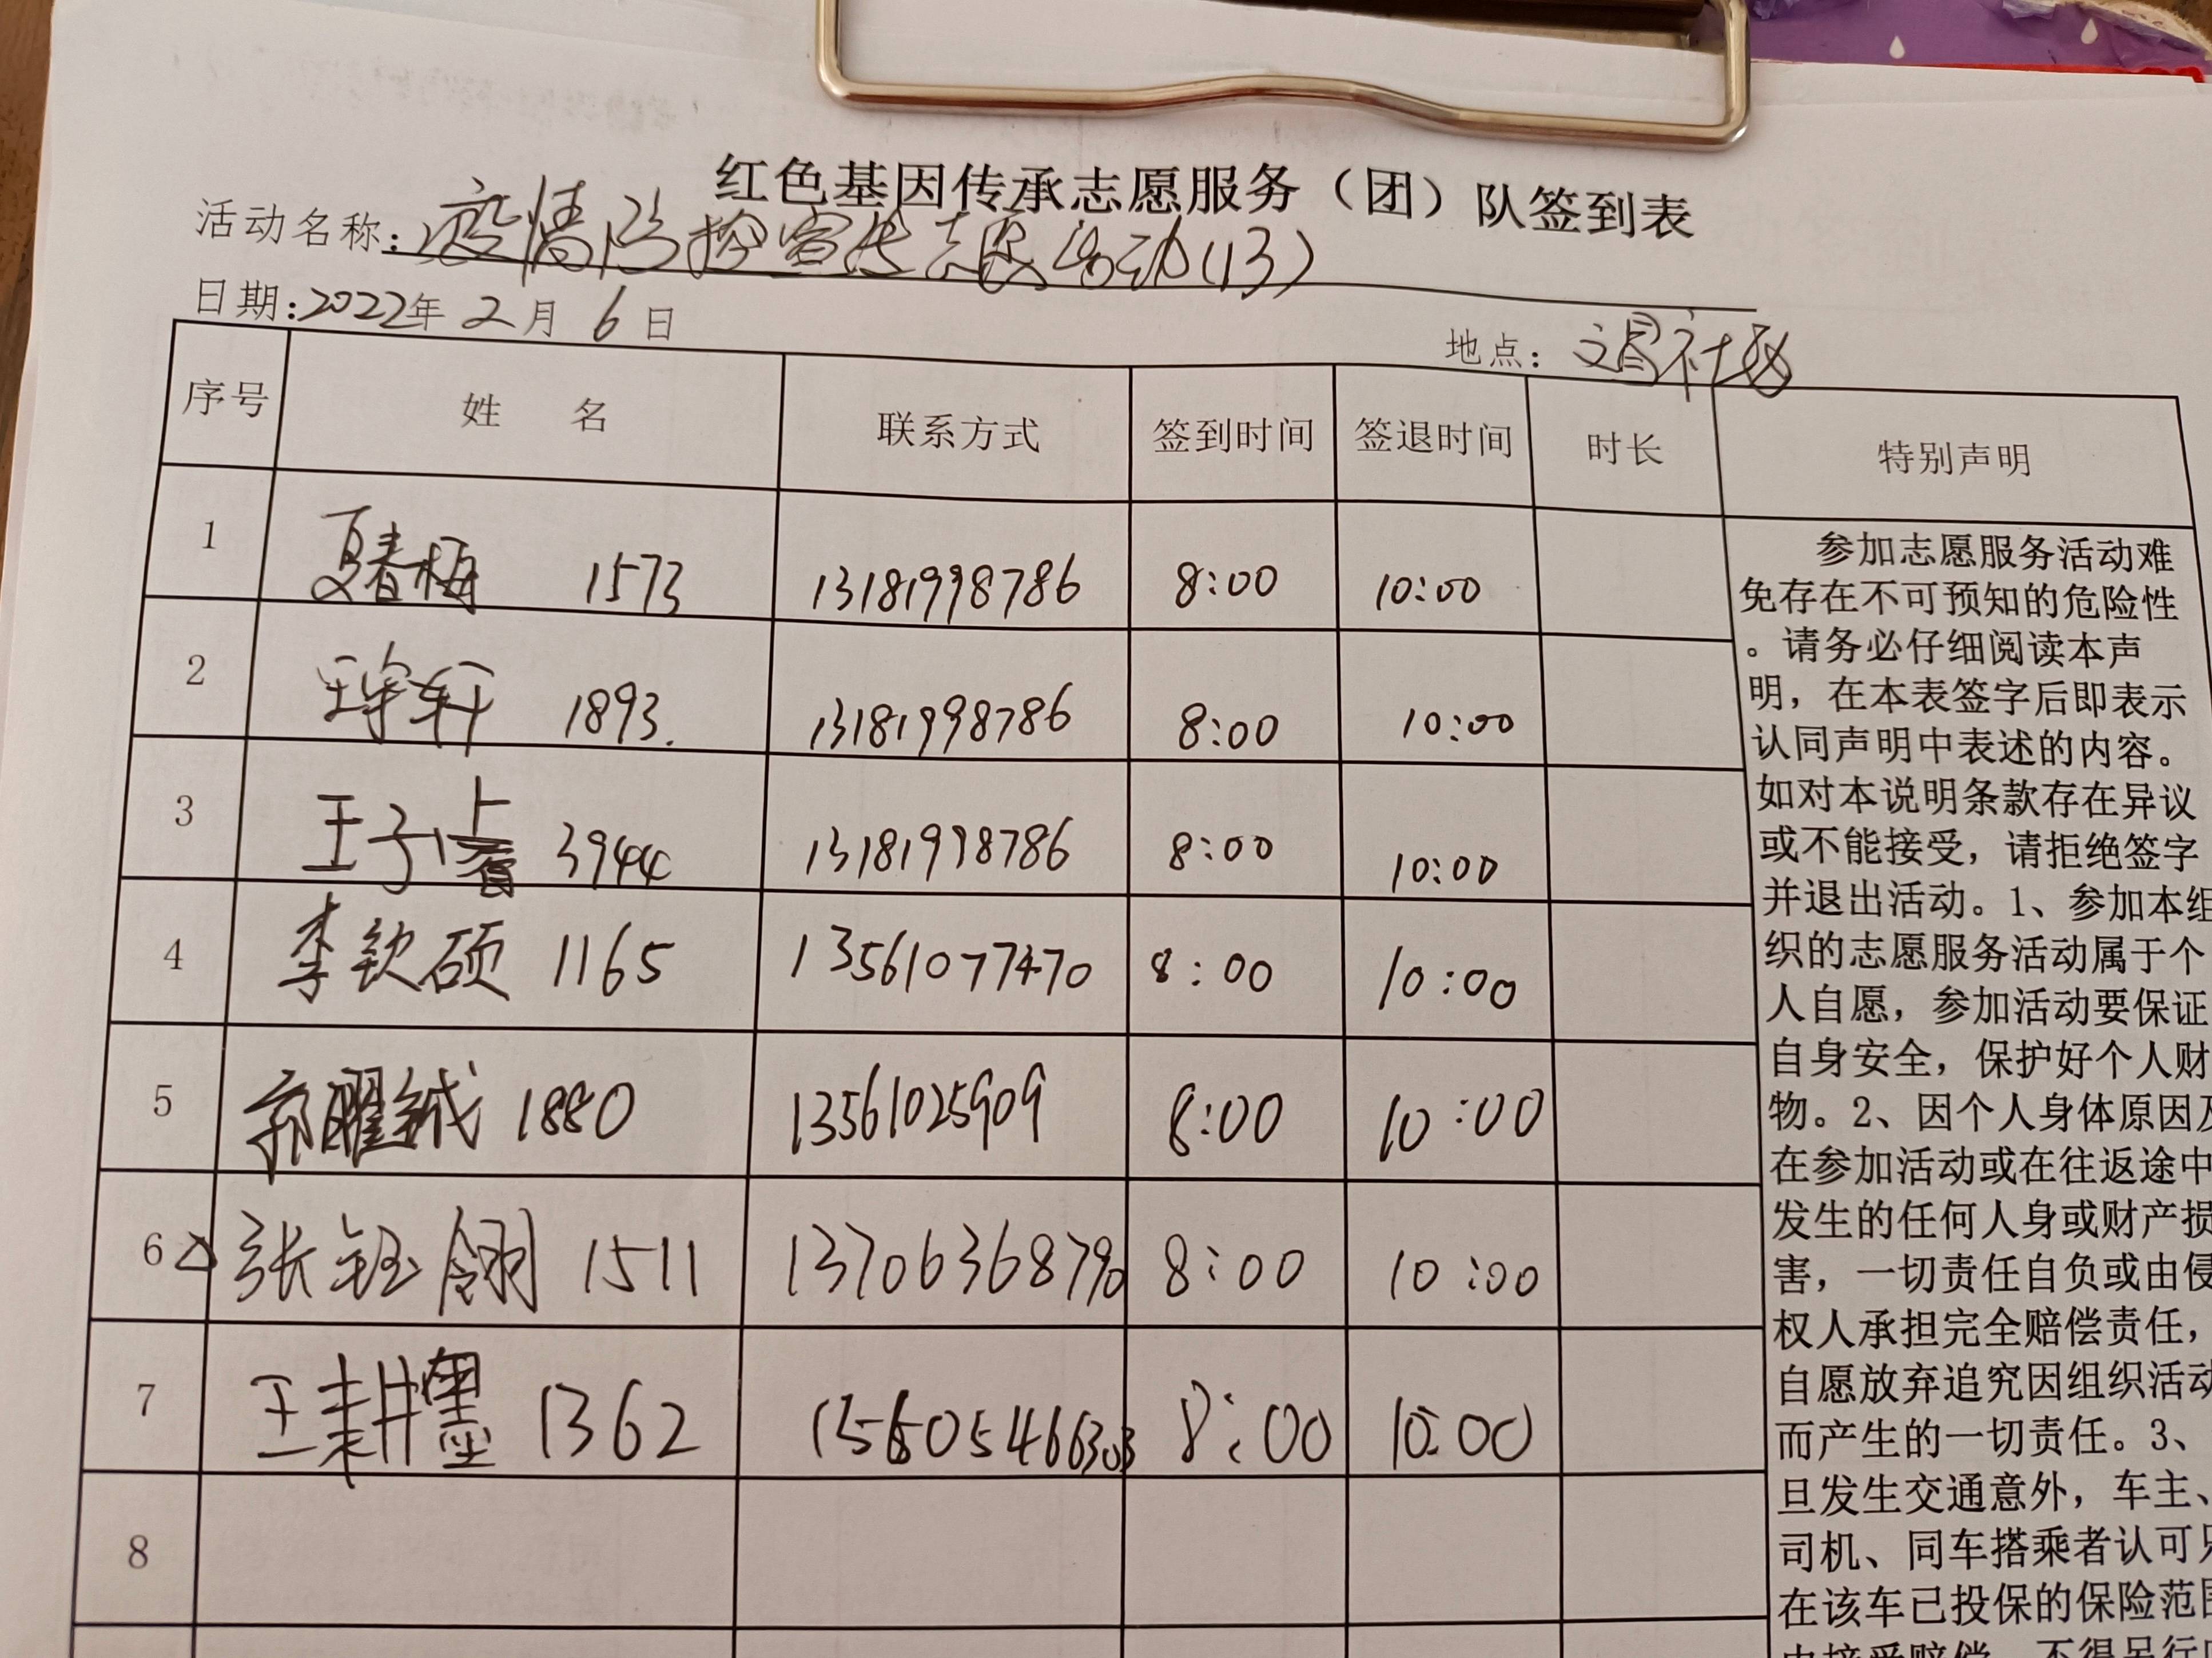 红色基因传承志愿服务（团）队签到表
活动名称：疫情防控宣传志愿活动(13)
日期:2022年2月6日
地点：文昌社区
序号 姓名 联系方式 签到时间 签退时间 时长 特别声明
1 夏春梅 1573 13181998786 8:00 10:00
2 王宇轩 1893. 13181998786 8:00 10:00
3 王子睿 3944 13181998786 8:00 10:00
4 李钦硕 1165 13561077470 8:00 10:00
5 郭曜铖 1880 13561025909 8:00 10:00
6 张钰翎 1511 13706368790 8:00 10:00
7 王耕墨 1362 8:00 10:00
8
参加志愿服务活动难
免存在不可预知的危险性
。请务必仔细阅读本声
明，在本表签字后即表示
认同声明中表述的内容。
如对本说明条款存在异议
或不能接受，请拒绝签字
并退出活动。1、参加本组
织的志愿服务活动属于个
人自愿，参加活动要保证
自身安全，保护好个人财
物。2、因个人身体原因及
在参加活动或在往返途中
发生的任何人身或财产损
害，一切责任自负或由侵
权人承担完全赔偿责任，
自愿放弃追究因组织活动
而产生的一切责任。3、
旦发生交通意外，车主、
司机、同车搭乘者认可只
在该车已投保的保险范围